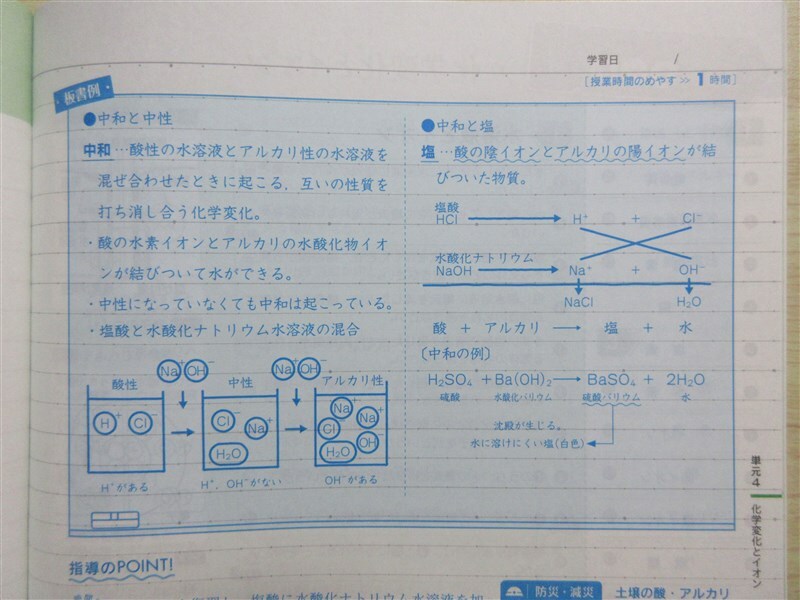 学習日 /
[授業時間のめやす>> 1時間]
板書例
●中和と中性
中和…酸性の水溶液とアルカリ性の水溶液を
混ぜ合わせたときに起こる,互いの性質を
打ち消し合う化学変化。
・酸の水素イオンとアルカリの水酸化物イオ
ンが結びついて水ができる。
・中性になっていなくても中和は起こっている。
・塩酸と水酸化ナトリウム水溶液の混合
Na⁺ OH⁻ Na⁺ OH⁻
酸性 中性 アルカリ性
H⁺ Cl⁻
Cl⁻ Na⁺ H₂O
Na⁺ Na⁺ Cl⁻ OH⁻ H₂O
H⁺がある H⁺, OH⁻がない OH⁻がある
●中和と塩
塩…酸の陰イオンとアルカリの陽イオンが結
びついた物質。
塩酸
HCl → H⁺ + Cl⁻
水酸化ナトリウム
NaOH → Na⁺ + OH⁻
NaCl H₂O
酸 + アルカリ → 塩 + 水
〔中和の例〕
H₂SO₄ + Ba(OH)₂ → BaSO₄ + 2H₂O
硫酸 水酸化バリウム 硫酸バリウム 水
沈殿が生じる。
水に溶けにくい塩(白色)
単元4 化学変化とイオン
指導のPOINT!
塩酸に水酸化ナトリウム水溶液を加
防災・減災 土壌の酸・アルカリ